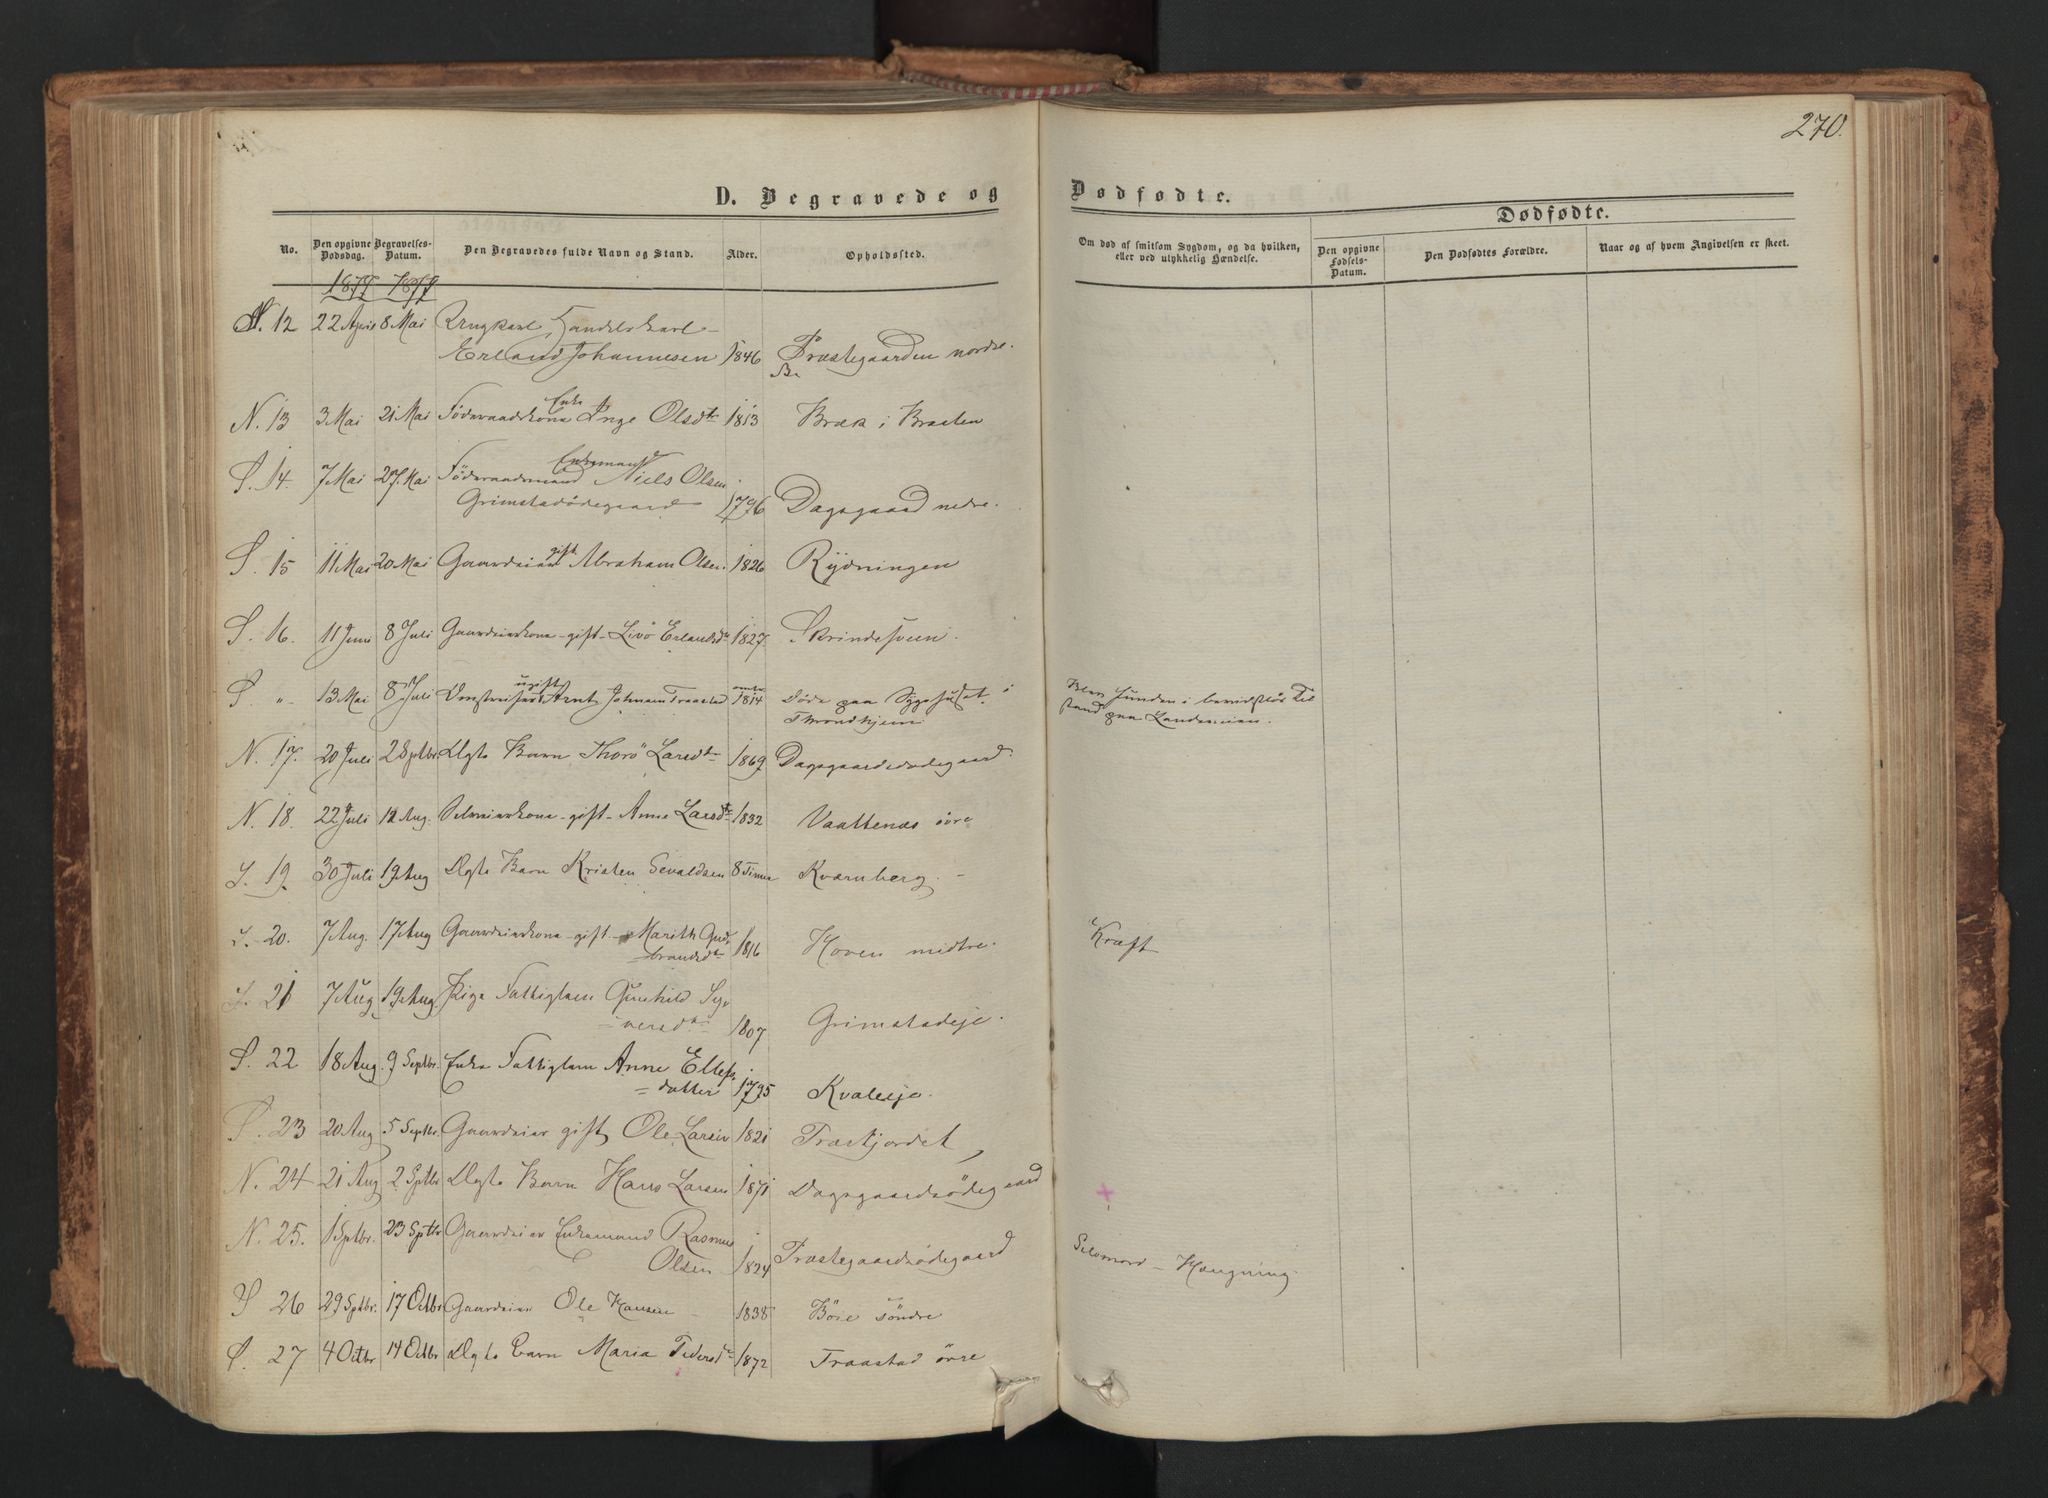 270.
D. Begravede og Dødfødte.
Dødfødte.
No. Den opgivne Dødsdag. Begravelses-Datum. Den Begravedes fulde Navn og Stand. Alder. Opholdssted. Om død af smitsom Sygdom, og da hvilken, eller ved ulykkelig Hændelse. Den opgivne Fødsels-Datum. Den Dødfødtes Forældre. Naar og af hvem Angivelsen er skeet.
1877 1877
N. 12 22 April 8 Mai Ungkarl, Handelskarl
Erland Johannesen 1846 Præstegaarden nordre.
N. 13 3 Mai 21 Mai Föderaadskone Enke Inge Olsdtr 1813 Bræk i Braaten
S. 14. 7 Mai 27. Mai Föderaadsmand Enkemand Niels Olsen
Grimstadödegaard 1796 Dagsgaard nedre.
S. 15 11 Mai 20 Mai Gaardeier gift Abraham Olsen. 1826 Rydningen
S. 16. 11 Juni 8 Juli Gaardeierkone - gift - Livö Erlandsdtr 1827. Skrindesveen.
S. " 13 Mai 8 Juli ugift Arnt Johnsen Traastad omtr 1814 Døde paa Sygehuset i
Throndhjem
Blev funden i bevidstløs Til
stand paa Landeveien.
N. 17. 20 Juli 2 Sptbr. Ægte Barn Thorö Larsdtr 1869 Dagsgaardsödegaard.
N. 18. 22 Juli 12 Aug. Selveierkone - gift - Anne Larsdtr 1832 Vaattenæs övre
S. 19 30 Juli 19 Aug Ægte Barn Kristen Sevaldsen 8 Timer Kvarnberg.
S. 20. 7 Aug. 17 Aug Gaardeierkone - gift - Marith Gud-
brandsdtr 1816 Hoven midtre. Kræft
S. 21 7 Aug 19 Aug. Pige Fattiglem Gunhild Sy-
versdtr 1807 Grimstadeje.
S. 22 18 Aug. 9 Septbr. Enke Fattiglem Anne Ellefs
= datter 1795 Kvaleeje.
S. 23 20 Aug 5 Septbr. Gaardeier gift, Ole Larsen 1821 Træetjordet
N. 24 21 Aug 2 Sptbr Ægte Barn Hans Larsen 1871 Dagsgaardsödegaard
N. 25. 1 Sptbr. 23 Sptbr Gaardeier Enkemand Rasmus
Olsen 1824 Præstegaardsödegaard Selvmord - Hængning.
S 26 29 Sptbr. 17 Octbr Gaardeier Ole Hansen - 1838 Böie söndre
S. 27 4 Octbr 14 Octbr Ægte Barn Maria Pedersdtr 1872 Traastad övre